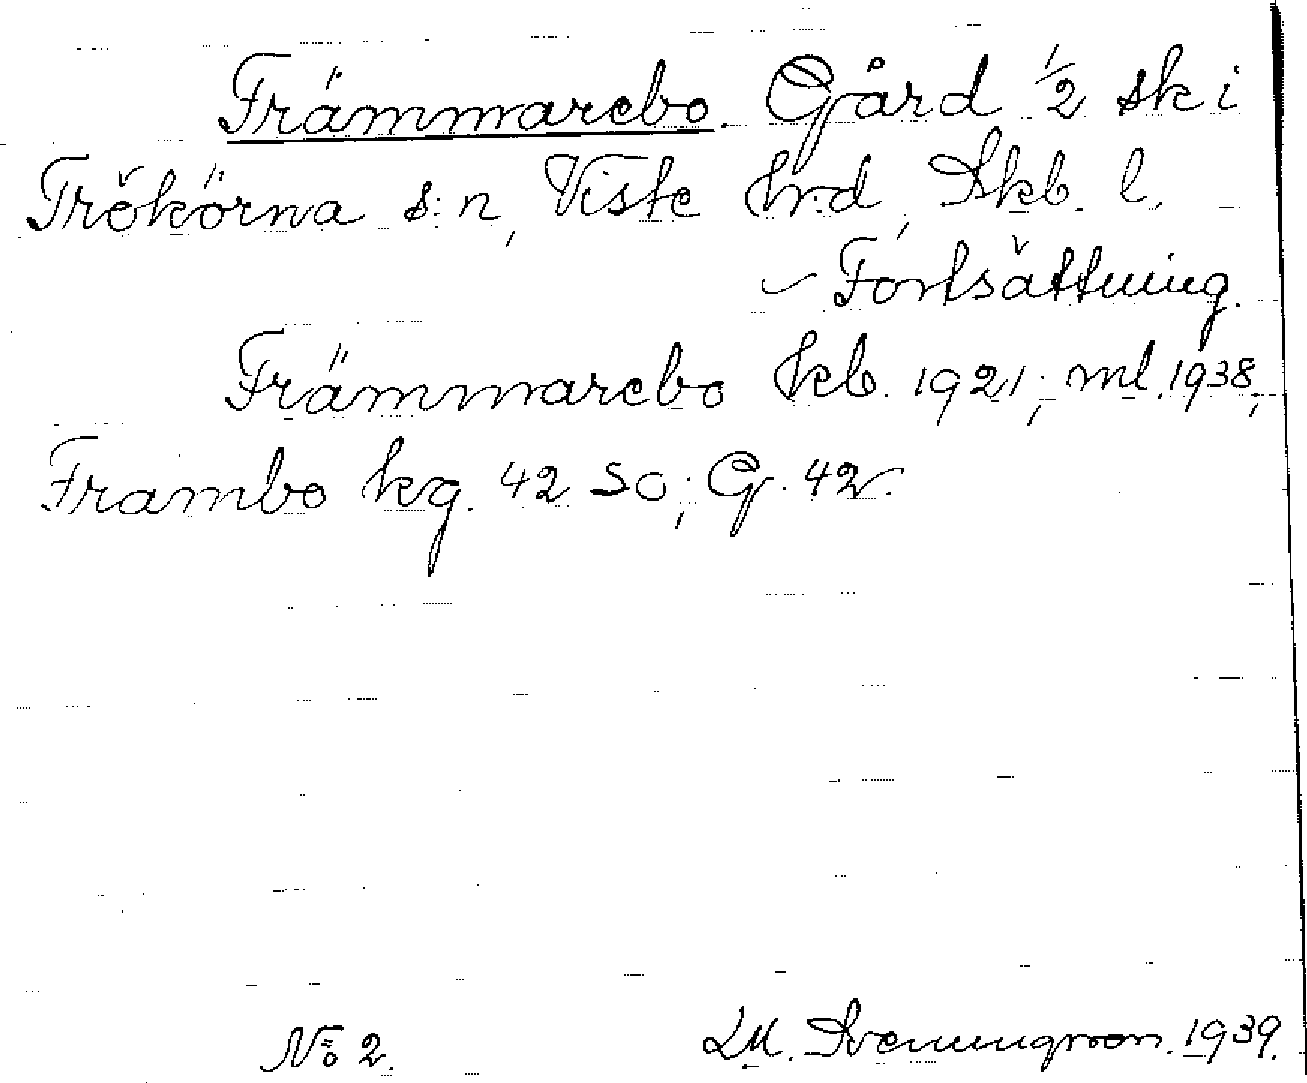 Främmarebo. Gård 1/2 sk i
Trökörna s:n, Viste hrd, Skb. l.
– Fortsättning.
Främmarebo kb. 1921; ml. 1938,
Frambo kg. 42 SO; G. 42.
No 2.
D.M. Svenungsson. 1939.